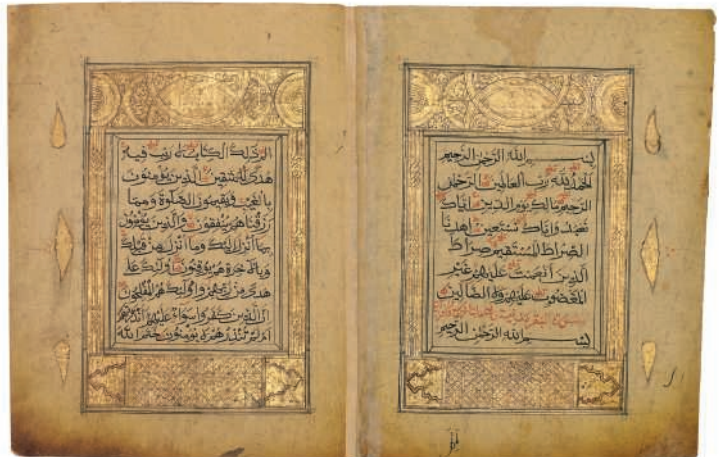 بسم الله الرحمن الرحيم
الحمد لله رب العالمين الرحمن
الرحيم مالك يوم الدين اياك
نعبد واياك نستعين اهدنا
الصراط المستقيم صراط
الذين انعمت عليهم غير
المغضوب عليهم ولا الضالين
بسم الله الرحمن الرحيم
الم ذلك الكتاب لا ريب فيه
هدى للمتقين الذين يؤمنون
بالغيب ويقيمون الصلوة ومما
رزقناهم ينفقون والذين يؤمنون
بما انزل اليك وما انزل من قبلك
وبالاخرة هم يوقنون اولئك على
هدى من ربهم واولئك هم المفلحون
ان الذين كفروا سواء عليهم ءانذرتهم
ام لم تنذرهم لا يؤمنون ختم الله